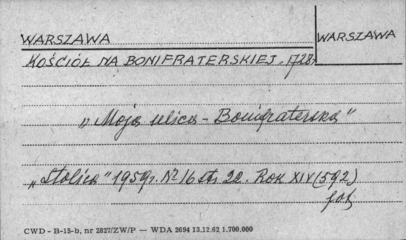 WARSZAWA
WARSZAWA
KOŚCIÓŁ NA BONIFRATERSKIEJ. 1728r
„Moja ulica - Bonifraterska"
„Stolica" 1959r. Nr 16 str. 22. Rok XIV (592)
fot.
CWD - B-15-b, nr 2827/ZW/P — WDA 2694 13.12.62 1.700.000